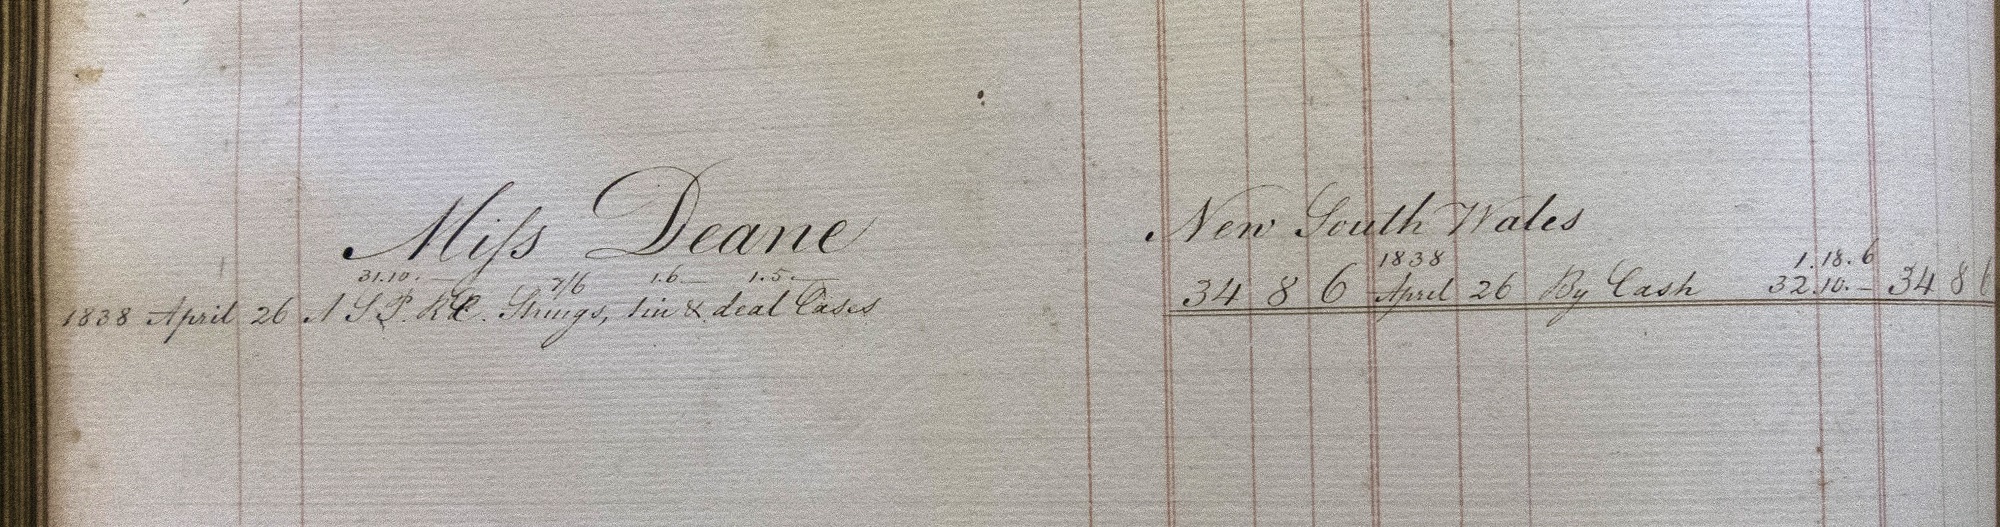 Miss Deane New South Wales
31.10.— 7/6 1.6.— 1.5.— 1838 1.18.6
1838 April 26 A S.P. Strings, tin & deal Cases 34 8 6 April 26 By Cash 32.10.— 34 8 6